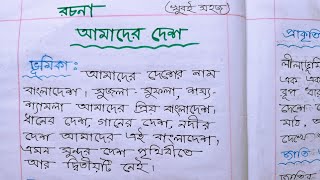 রচনা
(খুবই সহজ)
আমাদের দেশ
ভূমিকা: আমাদের দেশের নাম
বাংলাদেশ। সুজলা-সুফলা, শস্য-
শ্যামলা আমাদের প্রিয় বাংলাদেশ।
ধানের দেশ, গানের দেশ, নদীর
দেশ আমাদের এই বাংলাদেশ,
এমন সুন্দর দেশ পৃথিবীতে
আর দ্বিতীয়টি নেই।
প্রাকৃতি
লীলাভূমি
এক এক
রূপ ধার
দেশে
মাঠ,
দেখে
জাতি